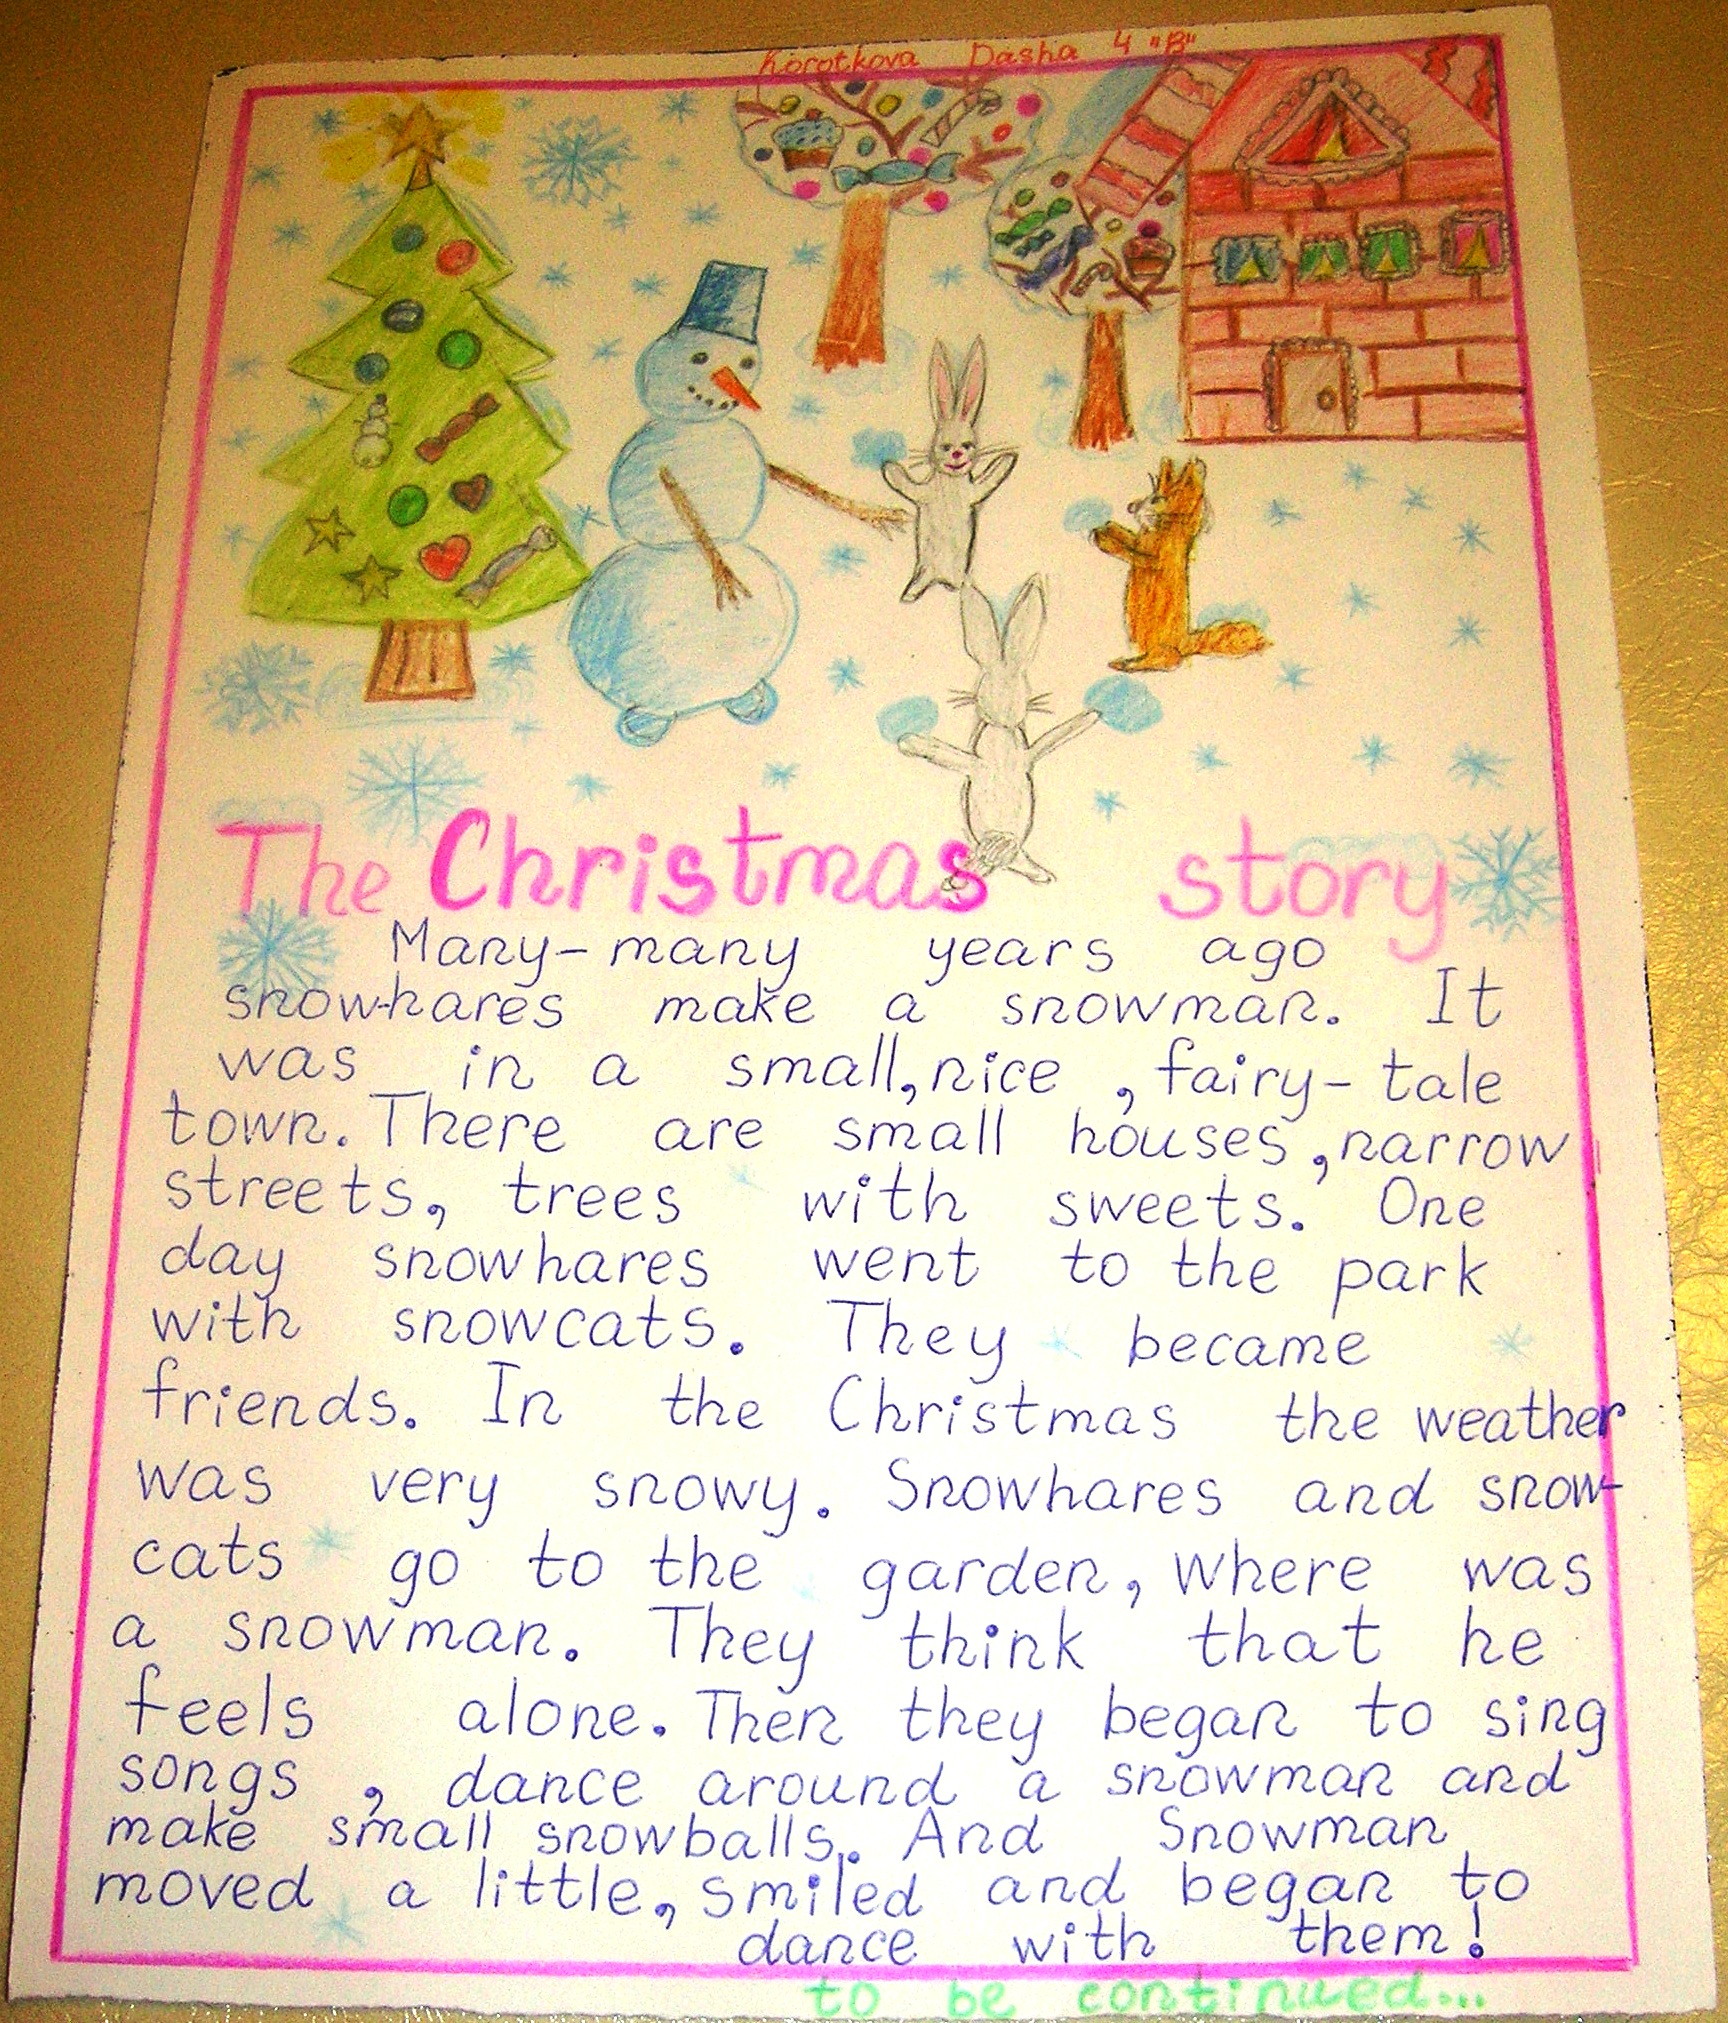 Korotkova Dasha 4 "B"
The Christmas story
Many-many years ago
snow-hares make a snowman. It
was in a small, nice, fairy-tale
town. There are small houses, narrow
streets, trees with sweets. One
day snowhares went to the park
with snowcats. They became
friends. In the Christmas the weather
was very snowy. Snowhares and snow-
cats go to the garden, where was
a snowman. They think that he
feels alone. Then they began to sing
songs, dance around a snowman and
make small snowballs. And Snowman
moved a little, smiled and began to
dance with them!
to be continued...